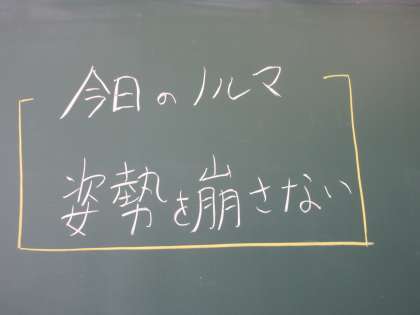 今日のノルマ
姿勢を崩さない